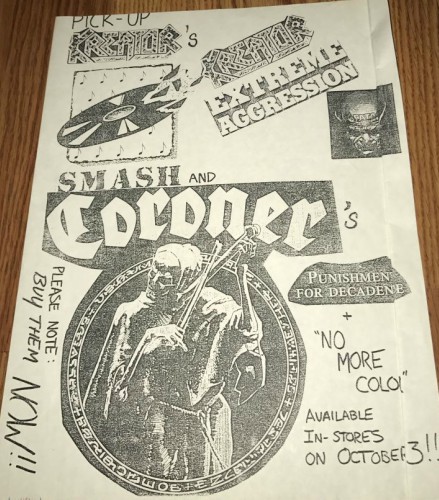 PICK-UP
KREATOR 's
KREATOR
EXTREME
AGGRESSION
SMASH AND
Coroner 's
PUNISHMEN
FOR DECADENE
+
"NO
MORE
COLO("
AVAILABLE
IN-STORES
ON OCTOBER 3!!
PLEASE NOTE:
BUY THEM NOW!!